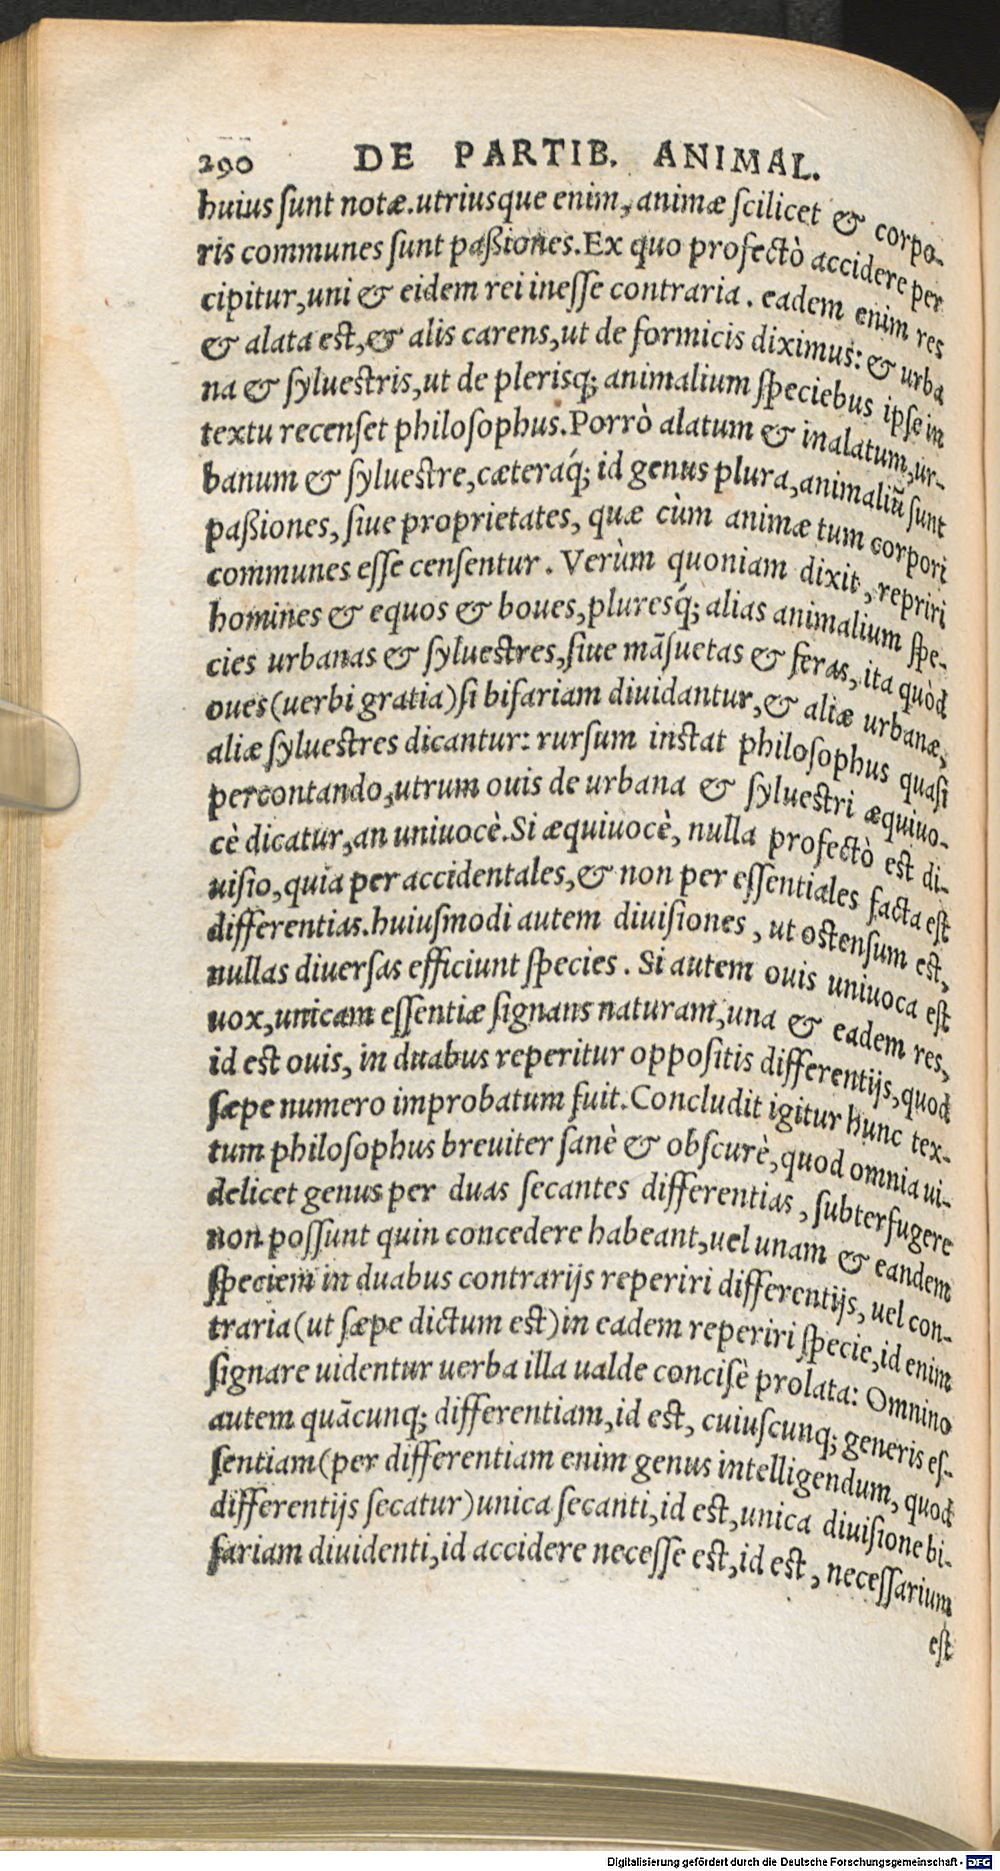 290 DE PARTIB. ANIMAL.
huius sunt notæ.utriusque enim,animæ scilicet & corpo-
ris communes sunt paßiones.Ex quo profectò accidere per
cipitur,uni & eidem rei inesse contraria. eadem enim res
& alata est,& alis carens,ut de formicis diximus: & urba
na & syluestris,ut de plerisq; animalium speciebus ipse in
textu recenset philosophus.Porrò alatum & inalatum,ur-
banum & syluestre,cæteraq́; id genus plura,animaliũ sunt
paßiones, siue proprietates, quæ cùm animæ tum corpori
communes esse censentur. Verùm quoniam dixit, repriri
homines & equos & boues,pluresq́; alias animalium spe-
cies urbanas & syluestres,siue mãsuetas & feras, ita quòd
oues(uerbi gratia)si bifariam diuidantur,& aliæ urbanæ,
aliæ syluestres dicantur: rursum instat philosophus quasi
percontando,utrum ouis de urbana & syluestri æquiuo-
cè dicatur,an uniuocè.Si æquiuocè, nulla profectò est di-
uisio,quia per accidentales,& non per essentiales facta est
differentias.huiusmodi autem diuisiones, ut ostensum est,
nullas diuersas efficiunt species. Si autem ouis uniuoca est
uox,unicam essentiæ signans naturam,una & eadem res,
id est ouis, in duabus reperitur oppositis differentijs,quod
sæpe numero improbatum fuit.Concludit igitur hunc tex-
tum philosophus breuiter sanè & obscurè,quod omnia ui-
delicet genus per duas secantes differentias, subterfugere
non possunt quin concedere habeant,uel unam & eandem
speciem in duabus contrarijs reperiri differentijs, uel con-
traria(ut sæpe dictum est)in eadem reperiri specie,id enim
signare uidentur uerba illa ualde concisè prolata: Omnino
autem quãcunq; differentiam,id est, cuiuscunq; generis es-
sentiam(per differentiam enim genus intelligendum, quod
differentijs secatur)unica secanti,id est,unica diuisione bi-
fariam diuidenti,id accidere necesse est,id est, necessarium
est
Digitalisierung gefördert durch die Deutsche Forschungsgemeinschaft - DFG